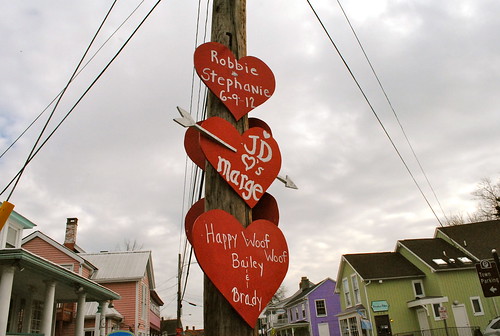 Robbie
&
Stephanie
6-9-12
JD
♡'s
marge
Happy Woof
Woof
Bailey
&
Brady
Town
Parking